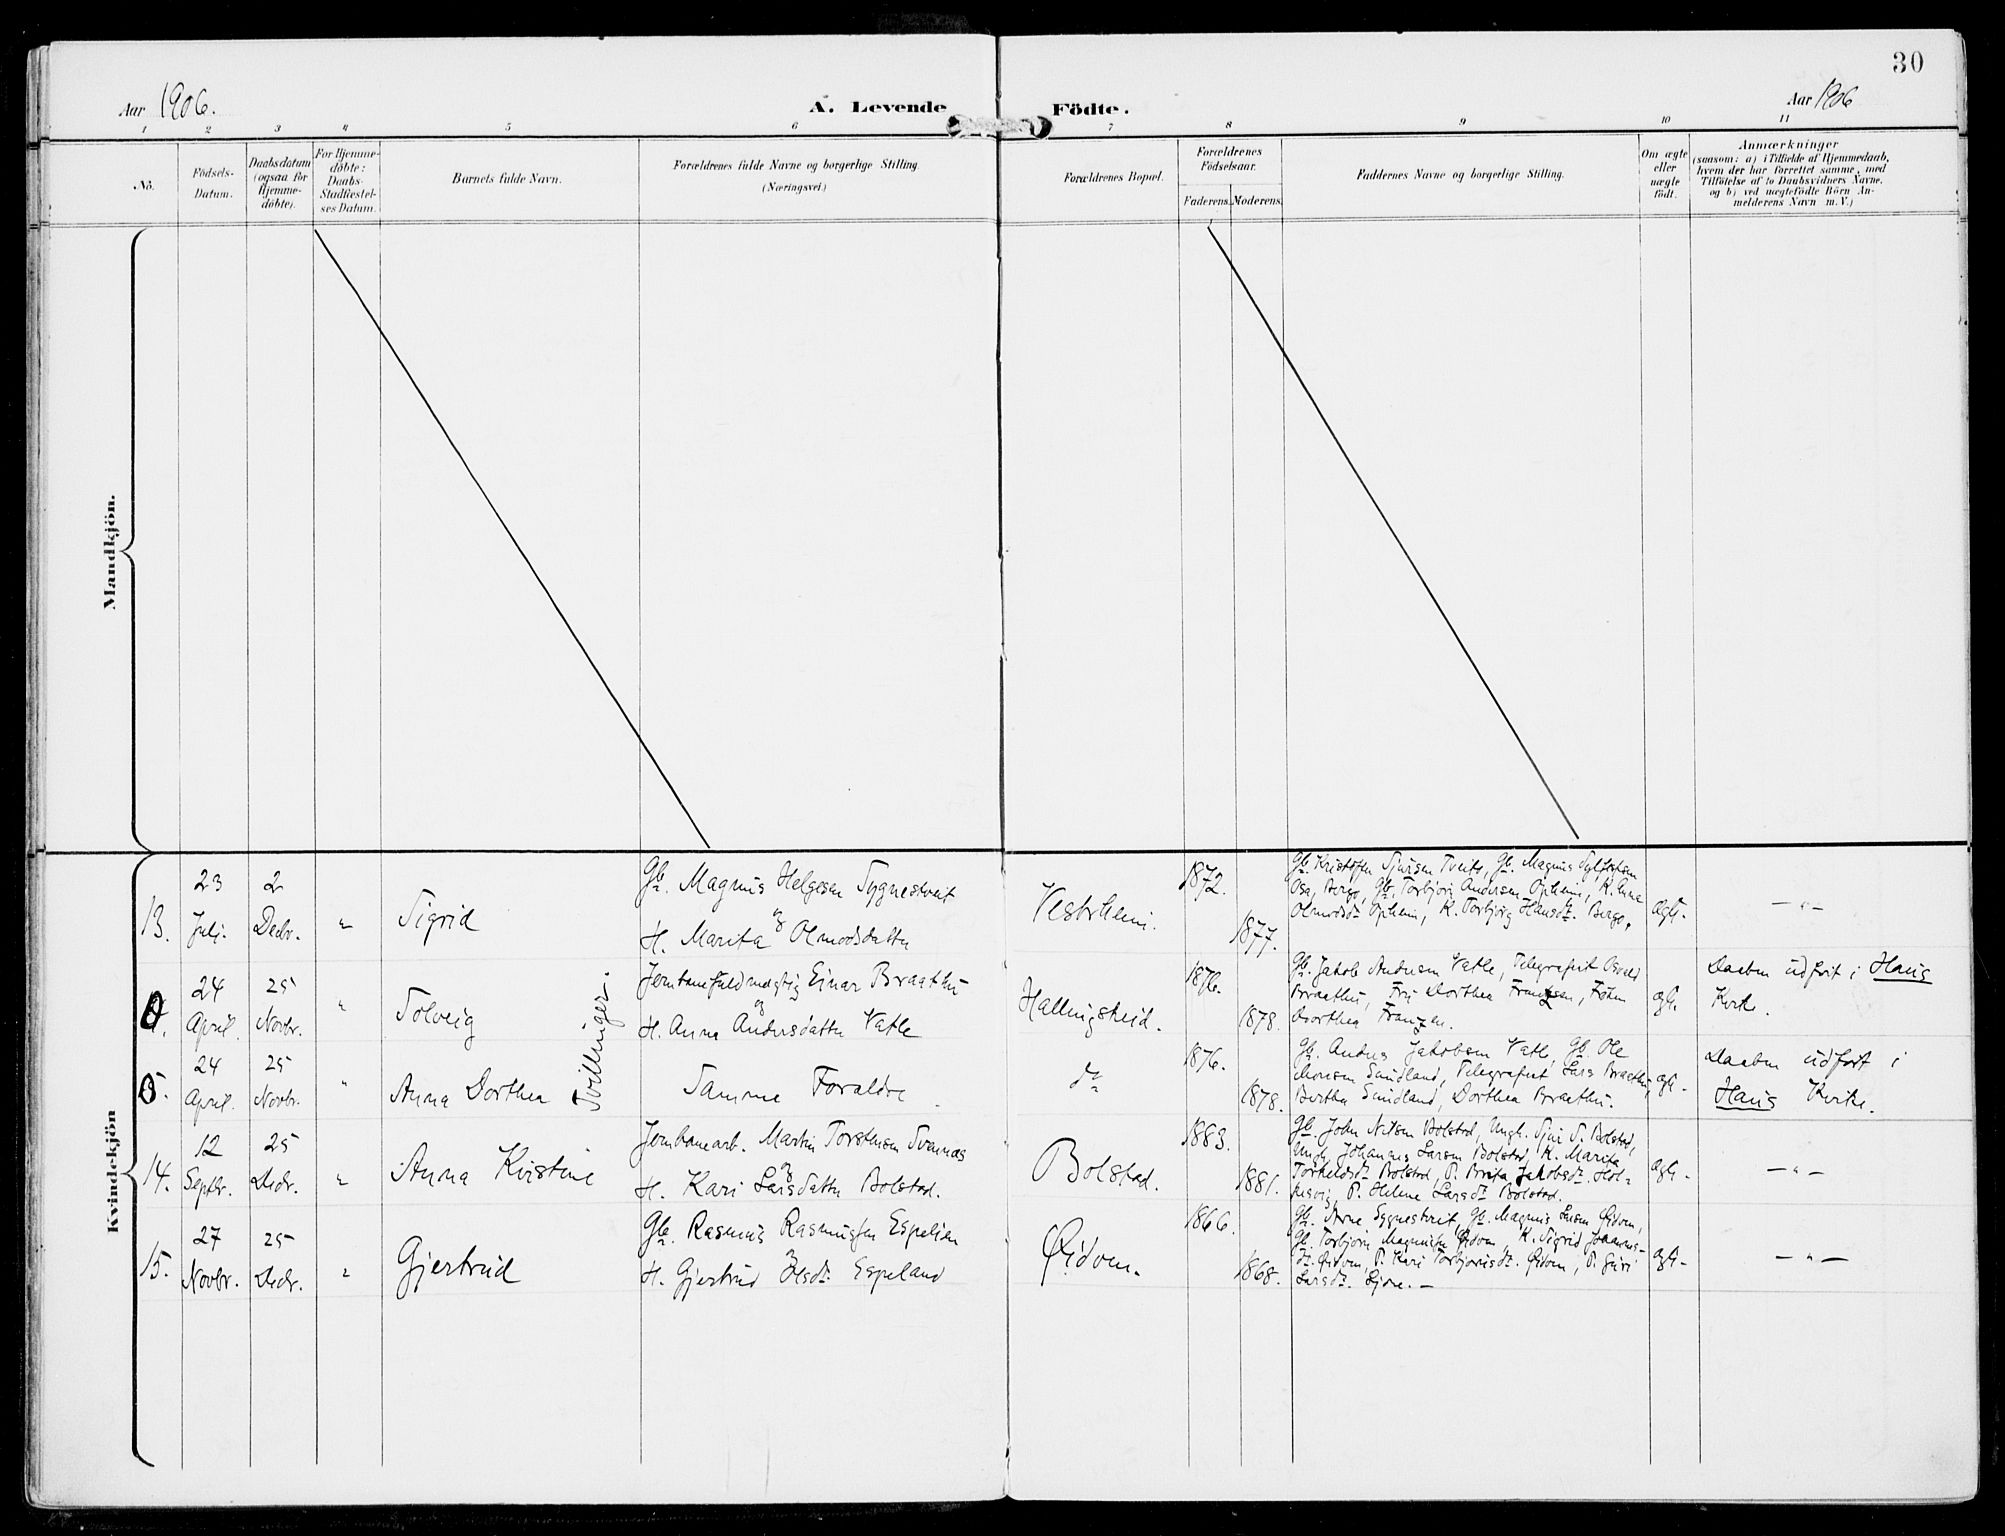 30
Aar 1906.
A. Levende Födte.
Aar 1906
1 2 3 4 5 6 7 8 9 10 11
No.
Födsels-
Datum.
Daabsdatum
(ogsaa for
Hjemme-
döbte).
For Hjemme-
döbte:
Daabs-
Stadfæstel-
ses Datum.
Barnets fulde Navn.
Forældrenes fulde Navne og borgerlige Stilling.
(Næringsvei.)
Forældrenes Bopæl.
Forældrenes
Födselsaar.
Faderens. Moderens.
Faddernes Navne og borgerlige Stilling.
Om ægte
eller
uægte
födt.
Anmærkninger
(saasom: a) i Tilfælde af Hjemmedaab,
hvem der har forrettet samme, med
Tilföielse af to Daabsvidners Navne,
og b) ved uægtefödte Börn An-
melderens Navn m. V.)
Mandkjön.
Kvindekjön
13.
23
Juli.
2
Decbr.
"
Sigrid
Gb. Magnus Helgesen Sygnestveit
og
H. Marita Olmodsdatter
Vestrheim.
1872.
1877.
Gb. Kristoffer Sjursen Tveito, Gb. Magnus
Osa, Berge, Gb. Torbjørn Andersen Opheim, K. Anna
Olmodsdt. Opheim, K. Torbjørg Hansdt. Berge.
ægte.
— " —
0.
24
April.
25
Novbr.
"
Solveig
Tvillinger.
Jernbanefuldmægtig Einar Braathu
og
H. Anna Andersdatter Vatle
Hallingskeid.
1876.
1878.
Gb. Jakob Andersen Vatle, Telegrafist Osvald
Braathu, Fru Dorthea Frantzen, Frøken
Dorthea Franzen.
ægte.
Daaben udført i Haus
Kirke.
0.
24
April.
25
Novbr.
"
Anna Dorthea
Samme Forældre
do
1876.
1878.
Gb. Anders Jakobsen Vatle, Gb. Ole
Monsen Sandland, Telegrafist Lars Braathu,
Bertha Sandland, Dorthea Braathu.
ægte.
Daaben udført i
Haus Kirke.
14.
12
Septbr.
25
Decbr.
"
Anna Kristine
Jernbanearb. Martin Torstensen Svannes
og
H. Kari Larsdatter Bolstad.
Bolstad.
1883.
1881.
Gb. John Nilsen Bolstad, Ungk. Sjur S. Bolstad,
Ungk. Johannes Larsen Bolstad, K. Marita
Torkeldsdt. Bolstad, P. Brita Jakobsdt. Hol-
P. Helene Larsdt. Bolstad.
ægte.
— " —
15.
27
Novbr.
25
Decbr.
"
Gjertrud
Gb. Rasmus Rasmussen Espeland
og
H. Gjertrud Olsdt. Espeland
Øidven.
1866.
1868.
Gb. Arne Sygnestveit, Gb. Magnus Larsen Øidven,
Gb. Torbjørn Magnussen Øidven, K. Sigrid Johannes-
dt. Øidven, P. Kari Torbjørnsdt. Øidven, P. Guri
Larsdt. Gjerre. —
ægte.
— " —